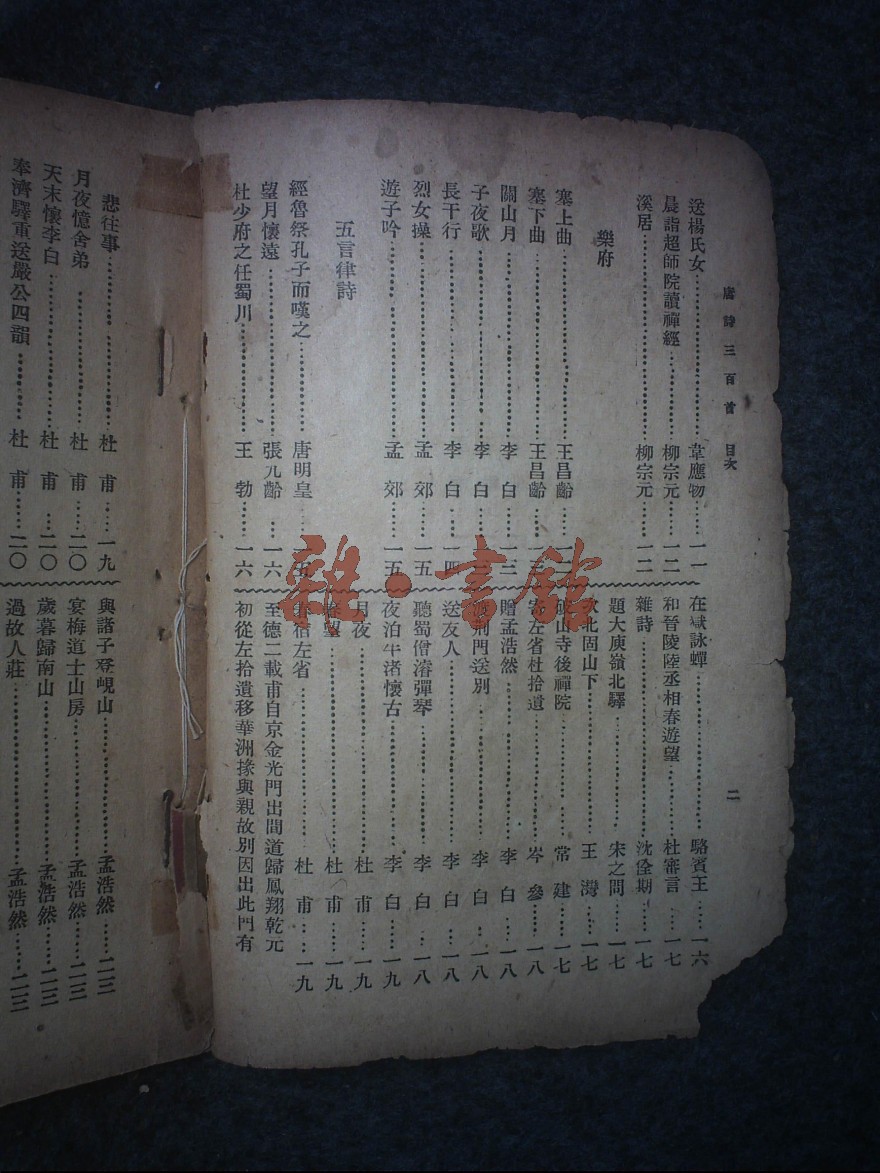 唐詩三百首 目次
二
送楊氏女……韋應物……一一
晨詣超師院讀禪經……柳宗元……一二
溪居……柳宗元……一二
樂府
塞上曲……王昌齡……一二
塞下曲……王昌齡……一三
關山月……李白……一三
子夜歌……李白……一三
長干行……李白……一四
烈女操……孟郊……一五
遊子吟……孟郊……一五
五言律詩
經魯祭孔子而嘆之……唐明皇……一五
望月懷遠……張九齡……一六
杜少府之任蜀川……王勃……一六
在獄詠蟬……駱賓王……一六
和晉陵陸丞相春遊望……杜審言……一七
雜詩……沈佺期……一七
題大庾嶺北驛……宋之問……一七
次北固山下……王灣……一七
破山寺後禪院……常建……一七
寄左省杜拾遺……岑參……一八
贈孟浩然……李白……一八
渡荆門送別……李白……一八
送友人……李白……一八
聽蜀僧濬彈琴……李白……一八
夜泊牛渚懷古……李白……一九
月夜……杜甫……一九
春望……杜甫……一九
春宿左省……杜甫……一九
至德二載甫自京金光門出間道歸鳳翔乾元
初從左拾遺移華洲掾與親故別因出此門有
悲往事……杜甫……一九
月夜憶舍弟……杜甫……二〇
天末懷李白……杜甫……二〇
奉濟驛重送嚴公四韻……杜甫……二〇
與諸子登峴山……孟浩然……二三
宴梅道士山房……孟浩然……二三
歲暮歸南山……孟浩然……二三
過故人莊……孟浩然……二三
雜·書館